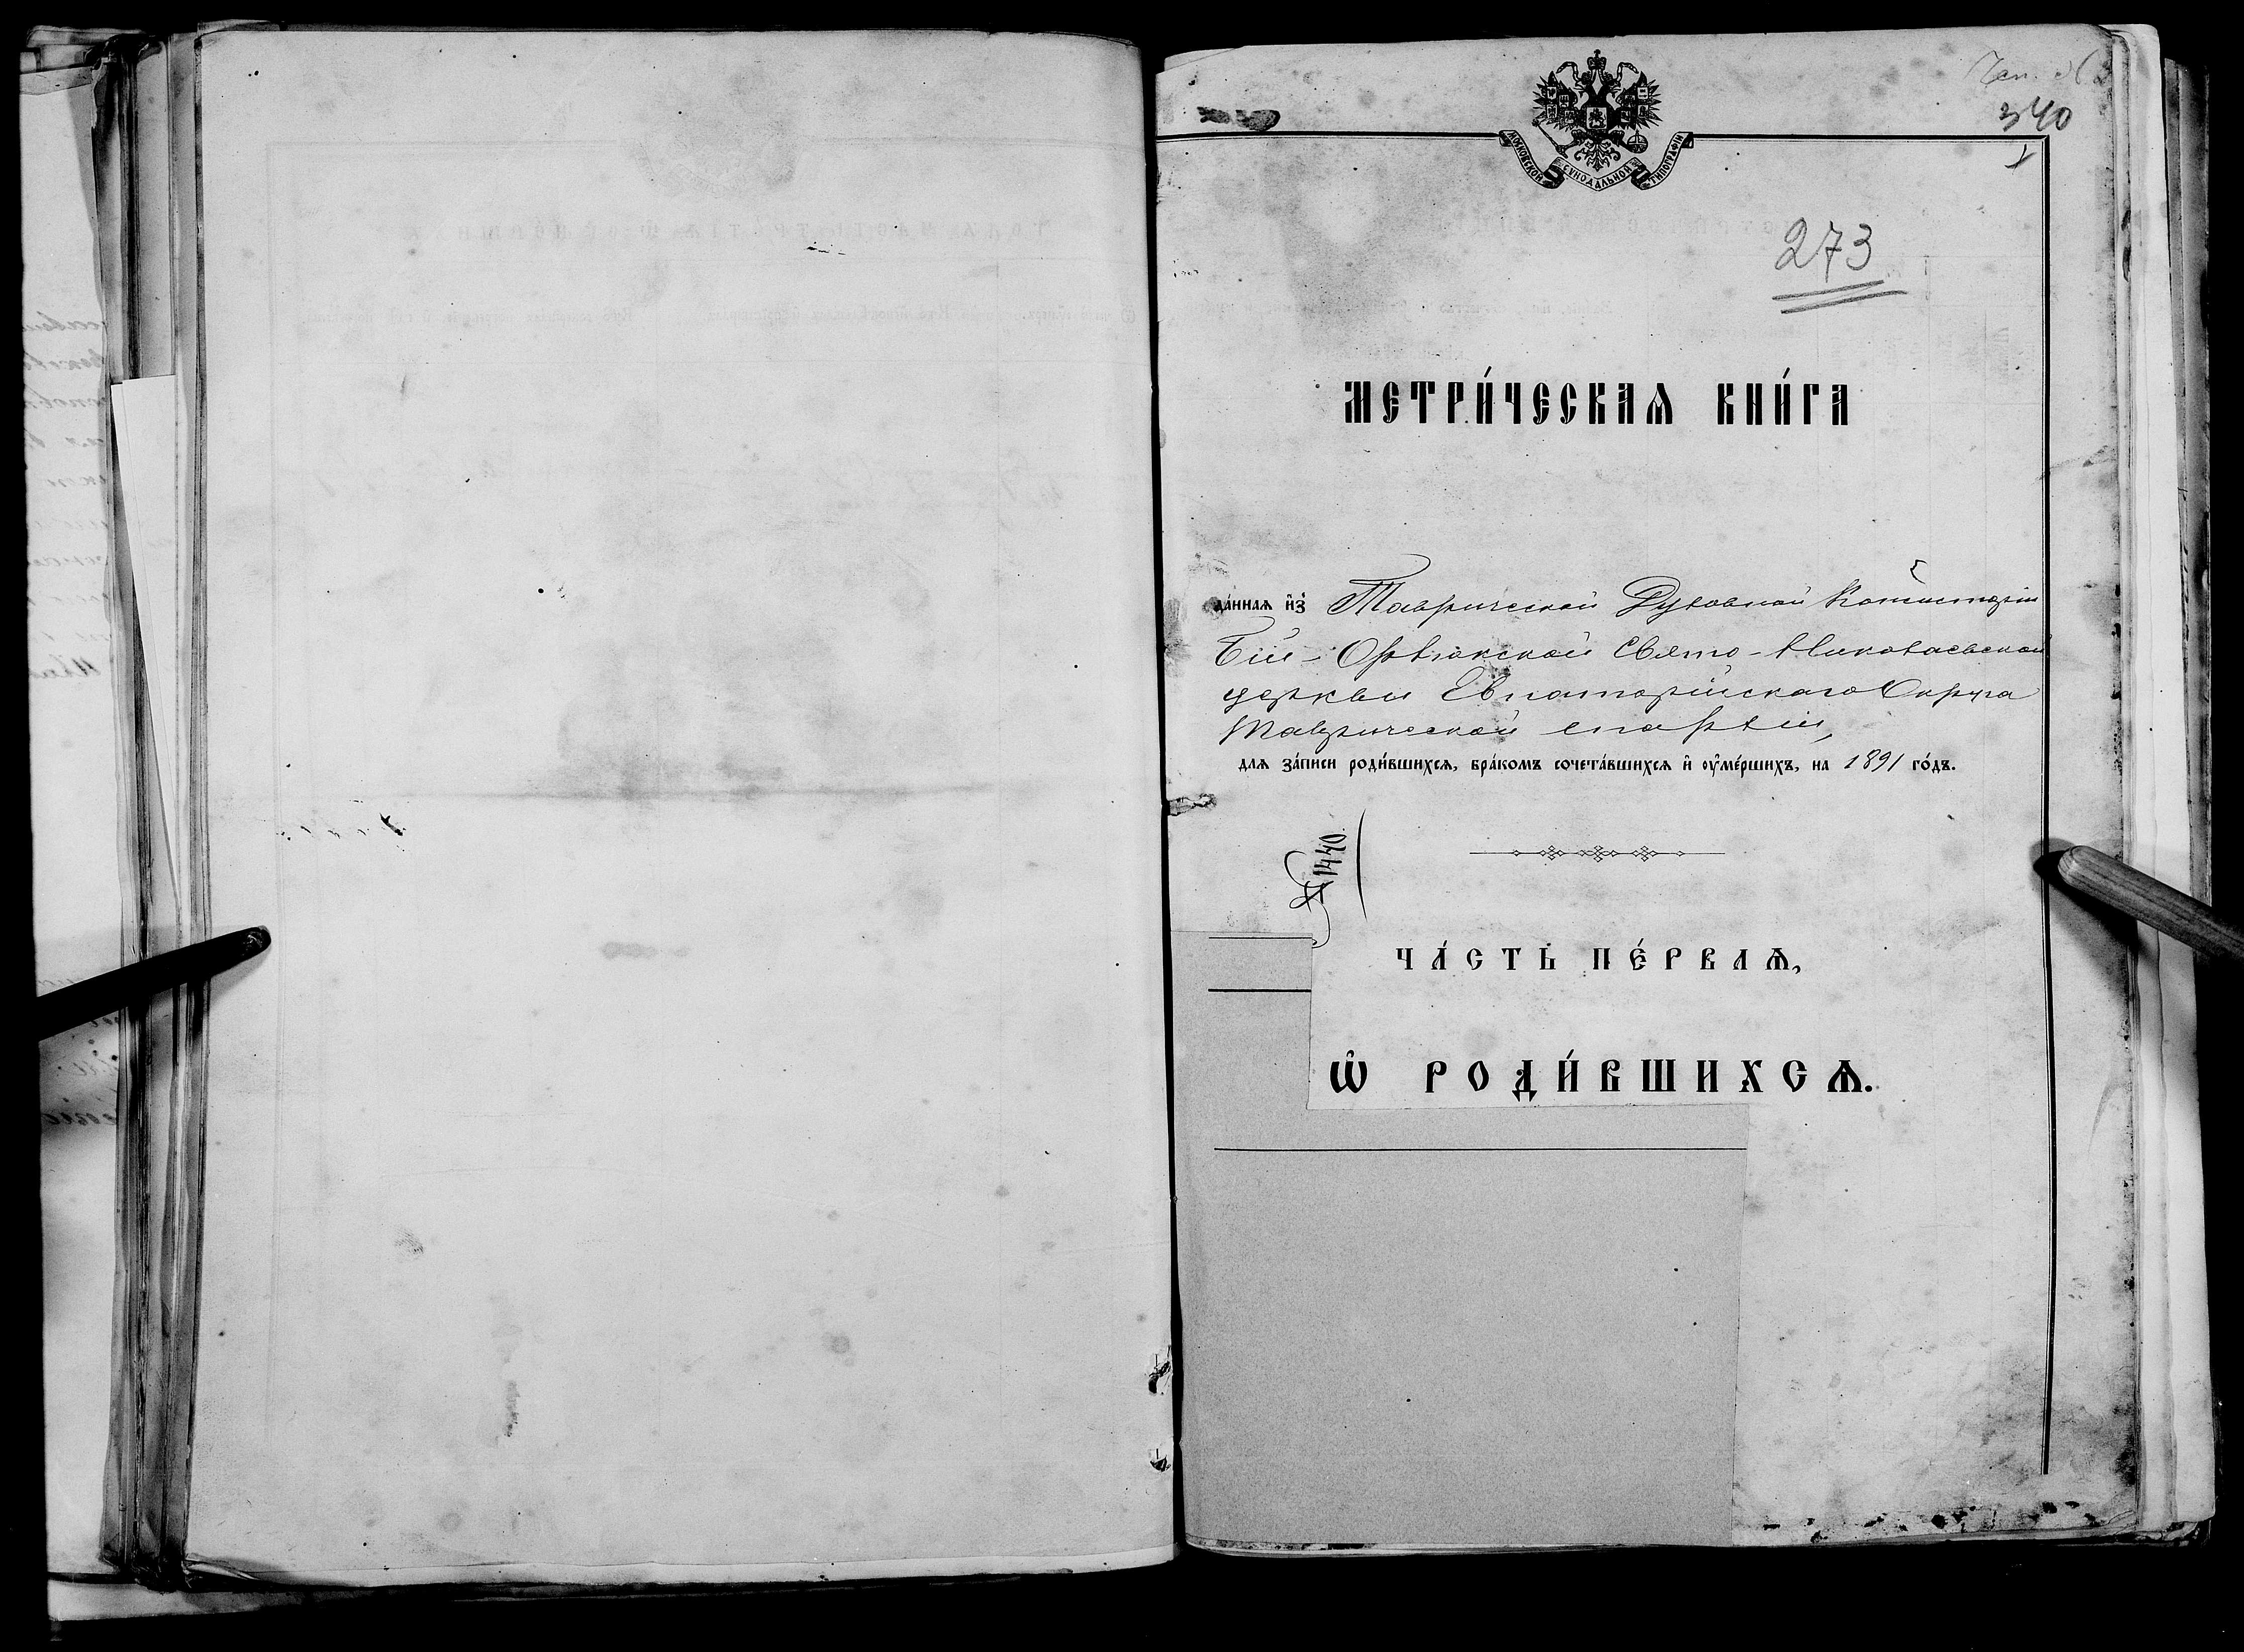 340
МОСКОВСКОЙ СѴНОДАЛЬНОЙ ТИПОГРАФІИ
273
МЕТРИ́ЧЕСКАѦ КНИ́ГА
да́ннаѧ и҆з̾ Таврической Духовной Консисторіи
Бій-Орлюкской Свято-Николаевской
церкви Евпаторійскаго Округа
Таврической епархіи,
длѧ за́писи роди́вшихсѧ, бра́комъ сочета́вшихсѧ и҆ ᲂу҆ме́ршихъ, на 1891 го́дъ.
№ 1440
ЧА́СТЬ ПЕ́РВАѦ,
Ѡ҆ РОДИ́ВШИХСѦ.